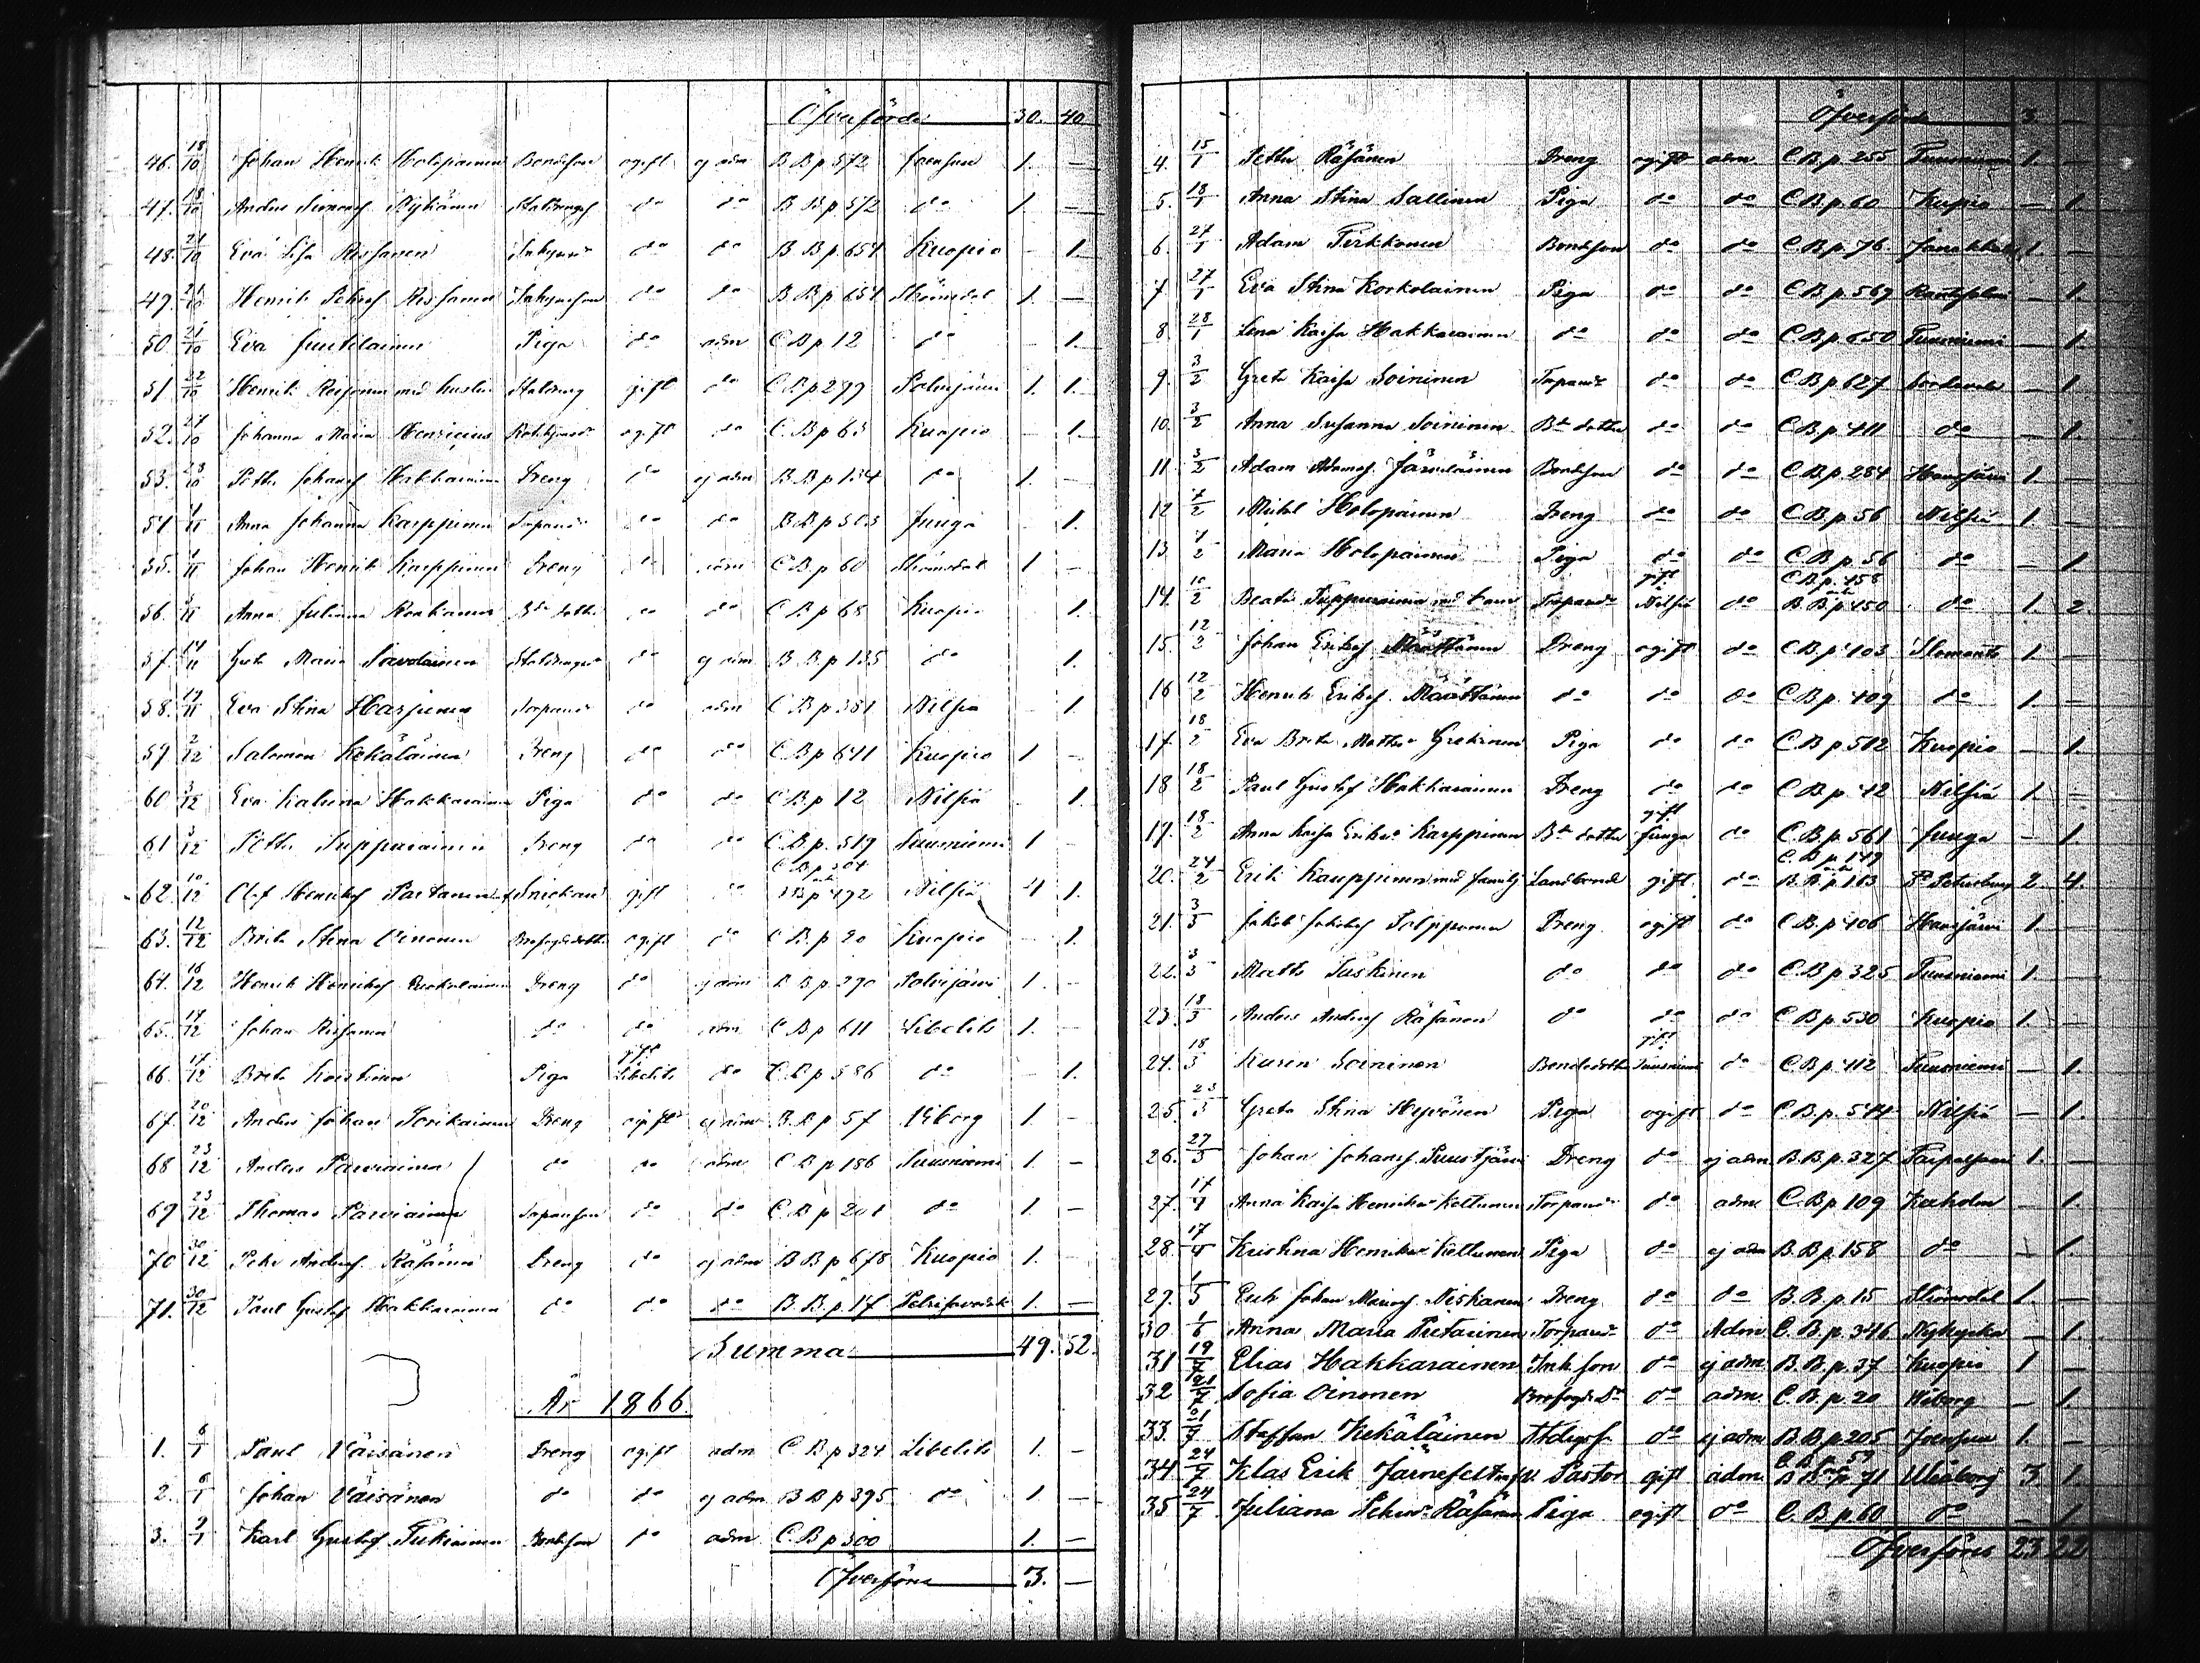 Öfverförde 30. 40.
46. 18/10 Johan Henrik Holopainen Bondeson ogift ej adm B.B.p 572 Joensuu 1. —
47. 18/10 Anders Simonsf. Nykänen do do B.B.p 572 do 1. —
48. 21/10 Eva Lisa Rissanen do do B.B.p. 654 Kuopio — 1.
49. 21/10 Henrik Petersf Rissanen do do B.B.p 654 Strömsdal 1. —
50. 21/10 Eva Juutilainen Piga do adm C.B.p 12 do — 1.
51. 22/10 Henrik med hustru gift do C.B.p 299 Polvijärvi 1. 1.
52. 27/10 Johanna Maria Henricius ogift do C.B.p 63 Kuopio — 1.
53. 28/10 Petter Johansf Hakkarainen Dreng do ej adm B.B.p 134 do 1. —
54. 1/11 Anna Johanna Karppinen do do B.B.p 503 Juuga — 1.
55. 1/11 Johan Henrik Karppinen Dreng do adm C.B.p 60 Strömsdal 1 —
56. 5/11 Anna Juliana do do C.B.p 68 Kuopio 1.
57. 14/11 Greta Maria Savolainen do ej adm B.B.p 135 do 1.
58. 17/11 Eva Stina Harjunen do adm C.B.p 381 Nilsiä 1.
59. 2/12 Salomon Kekäläinen Dreng do do C.B.p 641 Kuopio 1 —
60. 3/12 Eva Katrina Hakkarainen Piga do do C.B.p 12 Nilsiä — 1.
61. 3/12 Petter Tuppurainen Dreng do do C.B.p. 519 Tuusniemi 1 —
C.B.p 204
62. 10/12 Olof Henriksf Partanen Snickare gift do B.B.p 492 Nilsiä 4 1.
63. 12/12 Brita Stina Oinonen ogift do C.B.p 20 Kuopio — 1.
64. 16/12 Henrik Henriksf Dreng do ej adm B.B.p 290 Polvijärvi 1. —
65. 17/12 Johan Rissanen do do adm C.B.p 611 Libelits 1. —
gift
66. 17/12 Brita Piga Libelits do C.B.p 586 do — 1.
67. 20/12 Anders Johan Dreng ogift ej adm B.B.p 57 Viborg 1. —
68. 23/12 Anders Parviainen do do adm C.B.p 186 Tuusniemi 1. —
69. 23/12 Thomas Parviainen Torpareson do do C.B.p 201 do 1. —
70. 30/12 Peter Andersf. Räsänen Dreng do ej adm B.B.p 678 Kuopio 1. —
71. 30/12 Paul Gustaf Hakkarainen do do do B.B.p. 17 Petrisavodsk 1. —
Summa 49. 52.
År 1866.
1. 6/1 Paul Väisänen Dreng ogift adm C.B.p 324 Libelits 1. —
2. 6/1 Johan Väisänen do do ej adm B.B.p 395 do 1. —
3. 9/1 Karl Gustaf Tukiainen Bondeson do adm C.B.p 300 1. —
Öfverföres 3. —
Öfverförde 3. —
4. 15/1 Petter Räsänen Dreng ogift adm C.B.p. 255 Tuusniemi 1. —
5. 18/1 Anna Stina Sallinen Piga do do C.B.p. 60 Kuopio — 1.
6. 27/1 Adam Pirkkonen Bondeson do do C.B.p. 76 Janakkala 1. —
7. 27/1 Eva Stina Korkolainen Piga do do C.B.p. 569 — 1.
8. 28/1 Lena Kaisa Hakkarainen do do do C.B.p. 650 Tuusniemi — 1.
9. 3/2 Greta Kaisa Soininen do do C.B.p 627 Sordavala — 1.
10. 3/2 Anna Susanna Soininen Bde dotter do do C.B.p. 411 do — 1.
11. 3/2 Adam Adamsf. Järveläinen Bondeson do do C.B.p. 284 Haussjärvi 1. —
12. 7/2 Mickel Holopainen Dreng do do C.B.p. 56 Nilsiä 1. —
13. 7/2 Maria Holopainen Piga do do C.B.p. 56 do — 1
gift C.B.p. 458
14. 10/2 Beata Tuppurainen med barn Nilsiä do B.B.p 450 do 1. 2.
15. 12/2 Johan Eriksf. Määttänen Dreng ogift do C.B.p. 403 Ilomants 1. —
16. 12/2 Henrik Eriksf. Määttänen do do do C.B.p. 409 do 1. —
17. 18/2 Eva Brita Matts Piga do do C.B.p 512 Kuopio — 1.
18. 18/2 Paul Gustaf Hakkarainen Dreng do do C.B.p. 12 Nilsiä 1. —
gift
19. 18/2 Anna Kaisa Eriks Karppinen Bde dotter Juuga do C.B.p. 561 Juuga — 1.
C.B.p. 149
20. 24/2 Erik Kauppinen med familj Landbonde gift do B.B.p 113 St Petersburg 2 4.
21. 3/3 Jakob Jakobsf Dreng ogift do C.B.p 406 Haussjärvi 1. —
22. 3/3 Matts Tuskinen do do do C.B.p 325 Tuusniemi 1. —
23. 18/3 Anders Andersf Räsänen do do do C.B.p. 530 Kuopio 1. —
gift
24. 18/3 Karin Soininen Bondedotter Tuusniemi do C.B.p. 412 Tuusniemi — 1.
25. 23/3 Greta Stina Heyvänen Piga ogift do C.B.p. 544 Nilsiä — 1.
26. 27/3 Johan Johansf. Puustjärvi Dreng do ej adm B.B.p. 327 Taipalsaari 1. —
27. 17/4 Anna Kaisa Henriks Kettunen do adm. C.B.p 109 Kexholm — 1.
28. 17/4 Kristina Henriks Kettunen Piga do ej adm B.B.p. 158 do — 1.
29. 1/5 Johan Niskanen Dreng do do B.B.p. 15 Strömsdal 1. —
30. 1/6 Anna Maria Pietarinen do Adm C.B.p. 346 Nykyrka — 1.
31. 19/7 Elias Hakkarainen Inh. son do ej adm B.B.p. 37 Kuopio 1 —
32. 21/7 Sofia Oinonen do adm. C.B.p. 20 Wiborg — 1.
33. 21/7 Staffan Kekäläinen do ej adm B.B.p 205 Joensuu 1. —
C.B.p 59
34 24/7 Klas Erik Järnefelt Pastor gift adm B.B.p. 71 Uleåborg 3. 1.
35. 24/7 Juliana Peters Räsänen Piga ogift do C.B.p 60 do — 1.
Öfverföres 23 22